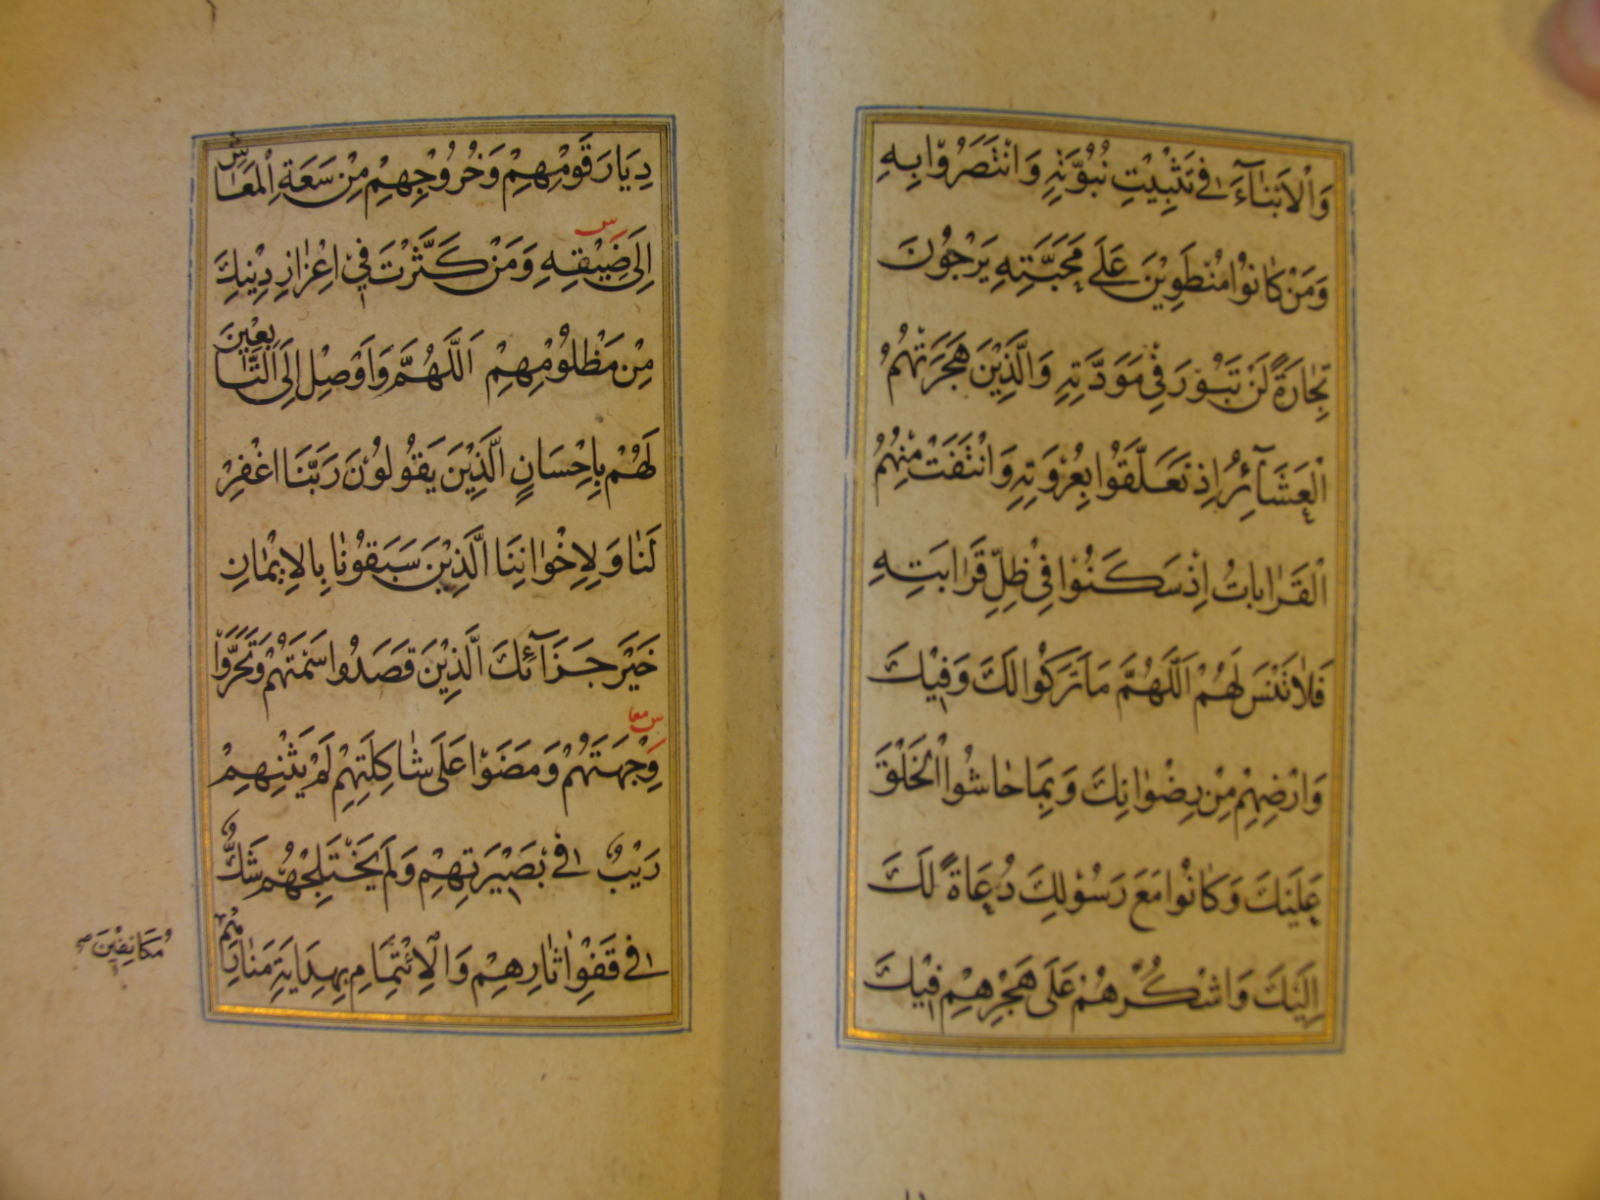 وَالْاَبْنَاءَ فِي تَثْبِيْتِ نُبُوَّتِهِ وَانْتَصَرُوْا بِهِ
وَمَنْ كَانُوْا مُنْطَوِيْنَ عَلَى مَحَبَّتِهِ يَرْجُوْنَ
تِجَارَةً لَنْ تَبُوْرَ فِي مَوَدَّتِهِ وَالَّذِيْنَ هَجَرَتْهُمُ
الْعَشَآئِرُ اِذْ تَعَلَّقُوْا بِعُرْوَتِهِ وَانْتَفَتْ مِنْهُمُ
الْقَرَابَاتُ اِذْ سَكَنُوْا فِيْ ظِلِّ قَرَابَتِهِ
فَلَا تَنْسَ لَهُمْ اَللَّهُمَّ مَا تَرَكُوْا لَكَ وَفِيْكَ
وَارْضِهِمْ مِنْ رِضْوَانِكَ وَبِمَا حَاشُوا الْخَلْقَ
عَلَيْكَ وَكَانُوْا مَعَ رَسُوْلِكَ دُعَاةً لَكَ
اِلَيْكَ وَاشْكُرْهُمْ عَلَى هَجْرِهِمْ فِيْكَ
دِيَارَ قَوْمِهِمْ وَخُرُوْجِهِمْ مِنْ سَعَةِ الْمَعَاشِ
اِلَى ضَيْقِهِ وَمَنْ كَثَّرْتَ فِيْ اِعْزَازِ دِيْنِكَ
مِنْ مَظْلُوْمِهِمْ اَللَّهُمَّ وَاَوْصِلْ اِلَى التَّابِعِيْنَ
لَهُمْ بِاِحْسَانٍ الَّذِيْنَ يَقُوْلُوْنَ رَبَّنَا اغْفِرْ
لَنَا وَلِاِخْوَانِنَا الَّذِيْنَ سَبَقُوْنَا بِالْاِيْمَانِ
خَيْرَ جَزَآئِكَ الَّذِيْنَ قَصَدُوْا سَمْتَهُمْ وَتَحَرَّوْا
وِجْهَتَهُمْ وَمَضَوْا عَلَى شَاكِلَتِهِمْ لَمْ يَثْنِهِمْ
رَيْبٌ فِي بَصِيْرَتِهِمْ وَلَمْ يَخْتَلِجْهُمْ شَكٌّ
فِي قَفْوِ اٰثَارِهِمْ وَالْاِئْتِمَامِ بِهِدَايَةِ مَنَارِهِمْ
مُكَانِفِيْنَ